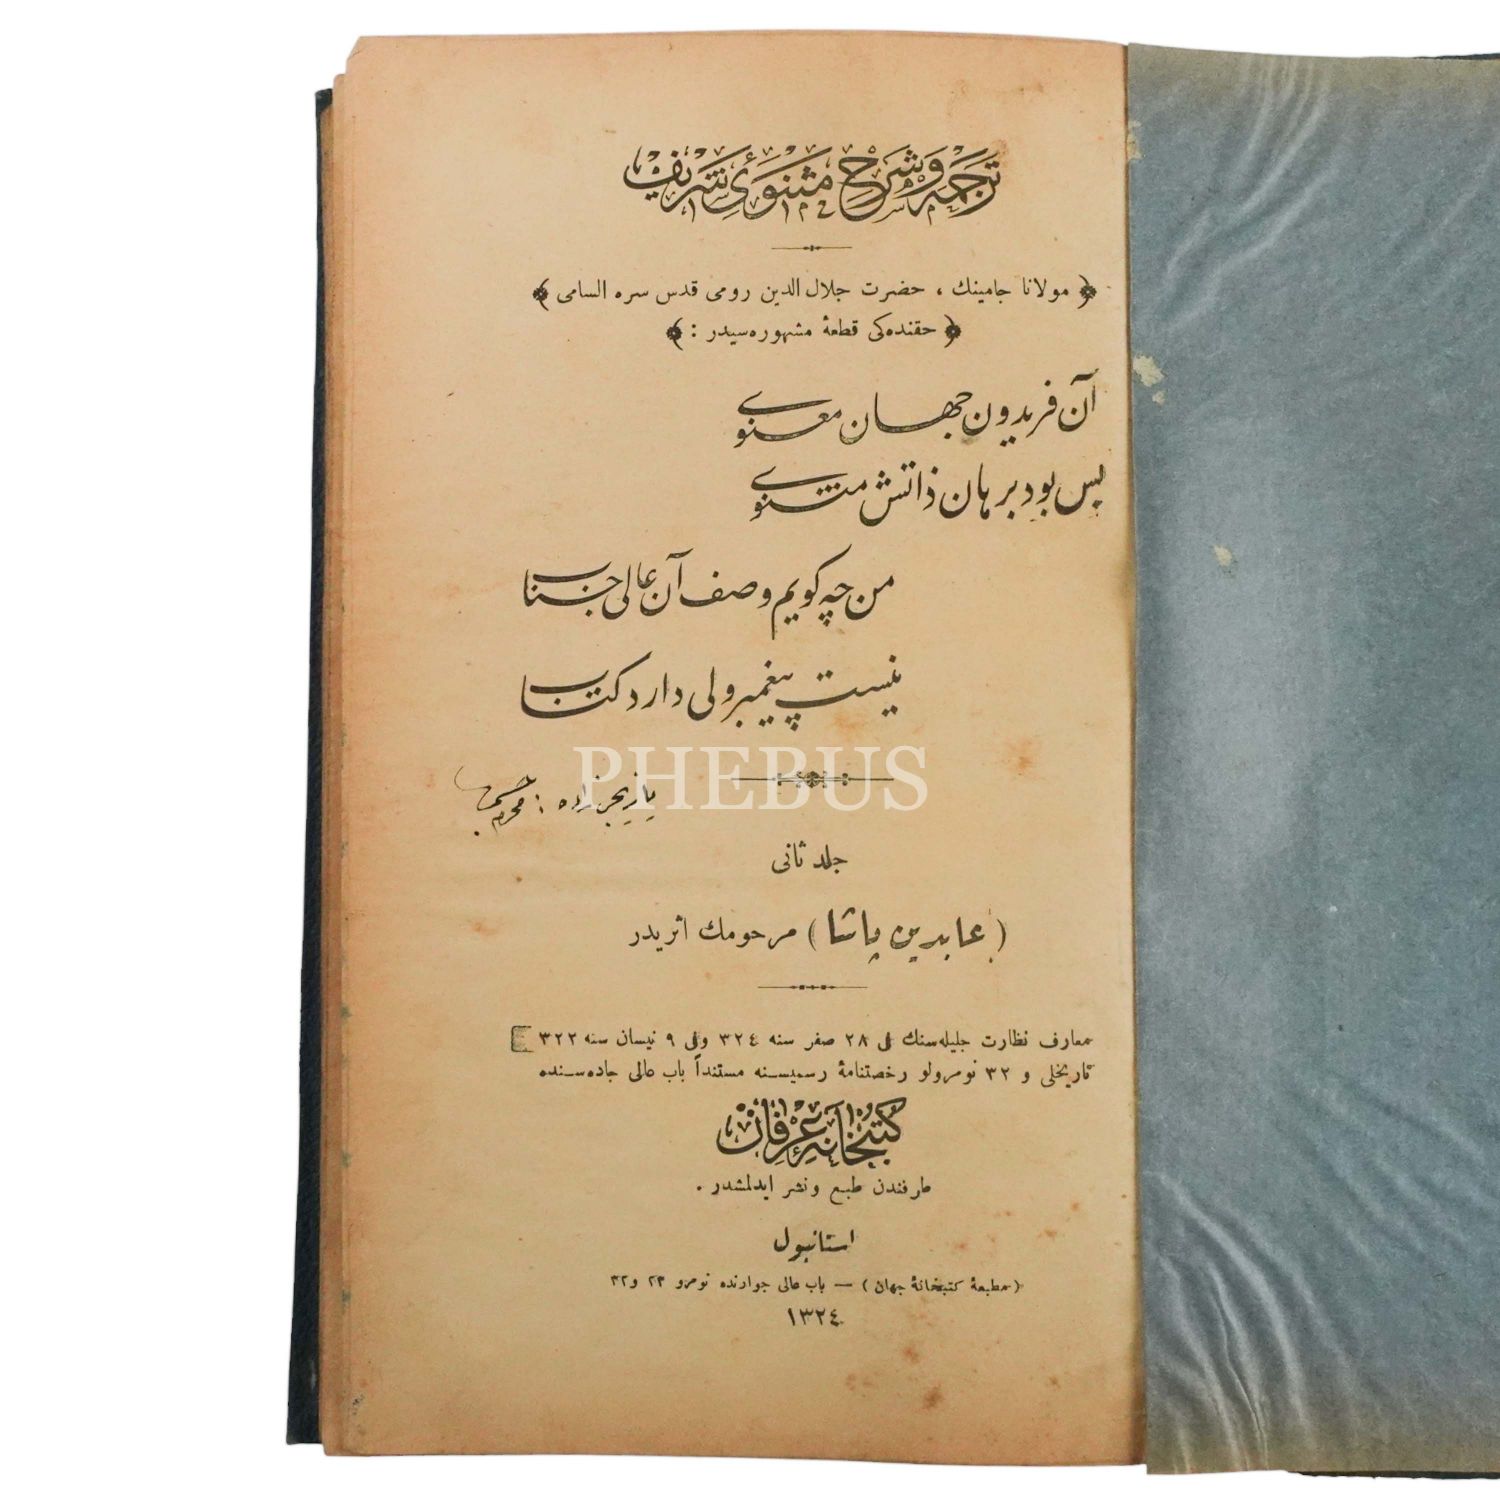 ترجمه و شرح مثنوئ شریف
﴿ مولانا جامینك ، حضرت جلال الدین رومی قدس سره السامی ﴾
﴿ حقنده‌کی قطعهٔ مشهوره‌سیدر : ﴾
آن فریدون جهان معنوی
بس بود برهان ذاتش مثنوی
من چه کویم وصف آن عالی جناب
نیست پیغمبر ولی دارد کتاب
PHEBUS
جلد ثانی
( عابدین پاشا ) مرحومك اثریدر
معارف نظارت جلیله‌سنك فی ٢٨ صفر سنه ٣٢٤ وفی ٩ نیسان سنه ٣٢٢
تاریخلی و ٣٢ نومرولو رخصتنامهٔ رسمیسنه مستنداً باب عالی جاده‌سنده
کتبخانهٔ عرفان
طرفندن طبع و نشر ایدلمشدر .
استانبول
( مطبعهٔ کتبخانهٔ جهان ) — باب عالی جوارنده نومرو ٢٣ و ٣٢
١٣٢٤